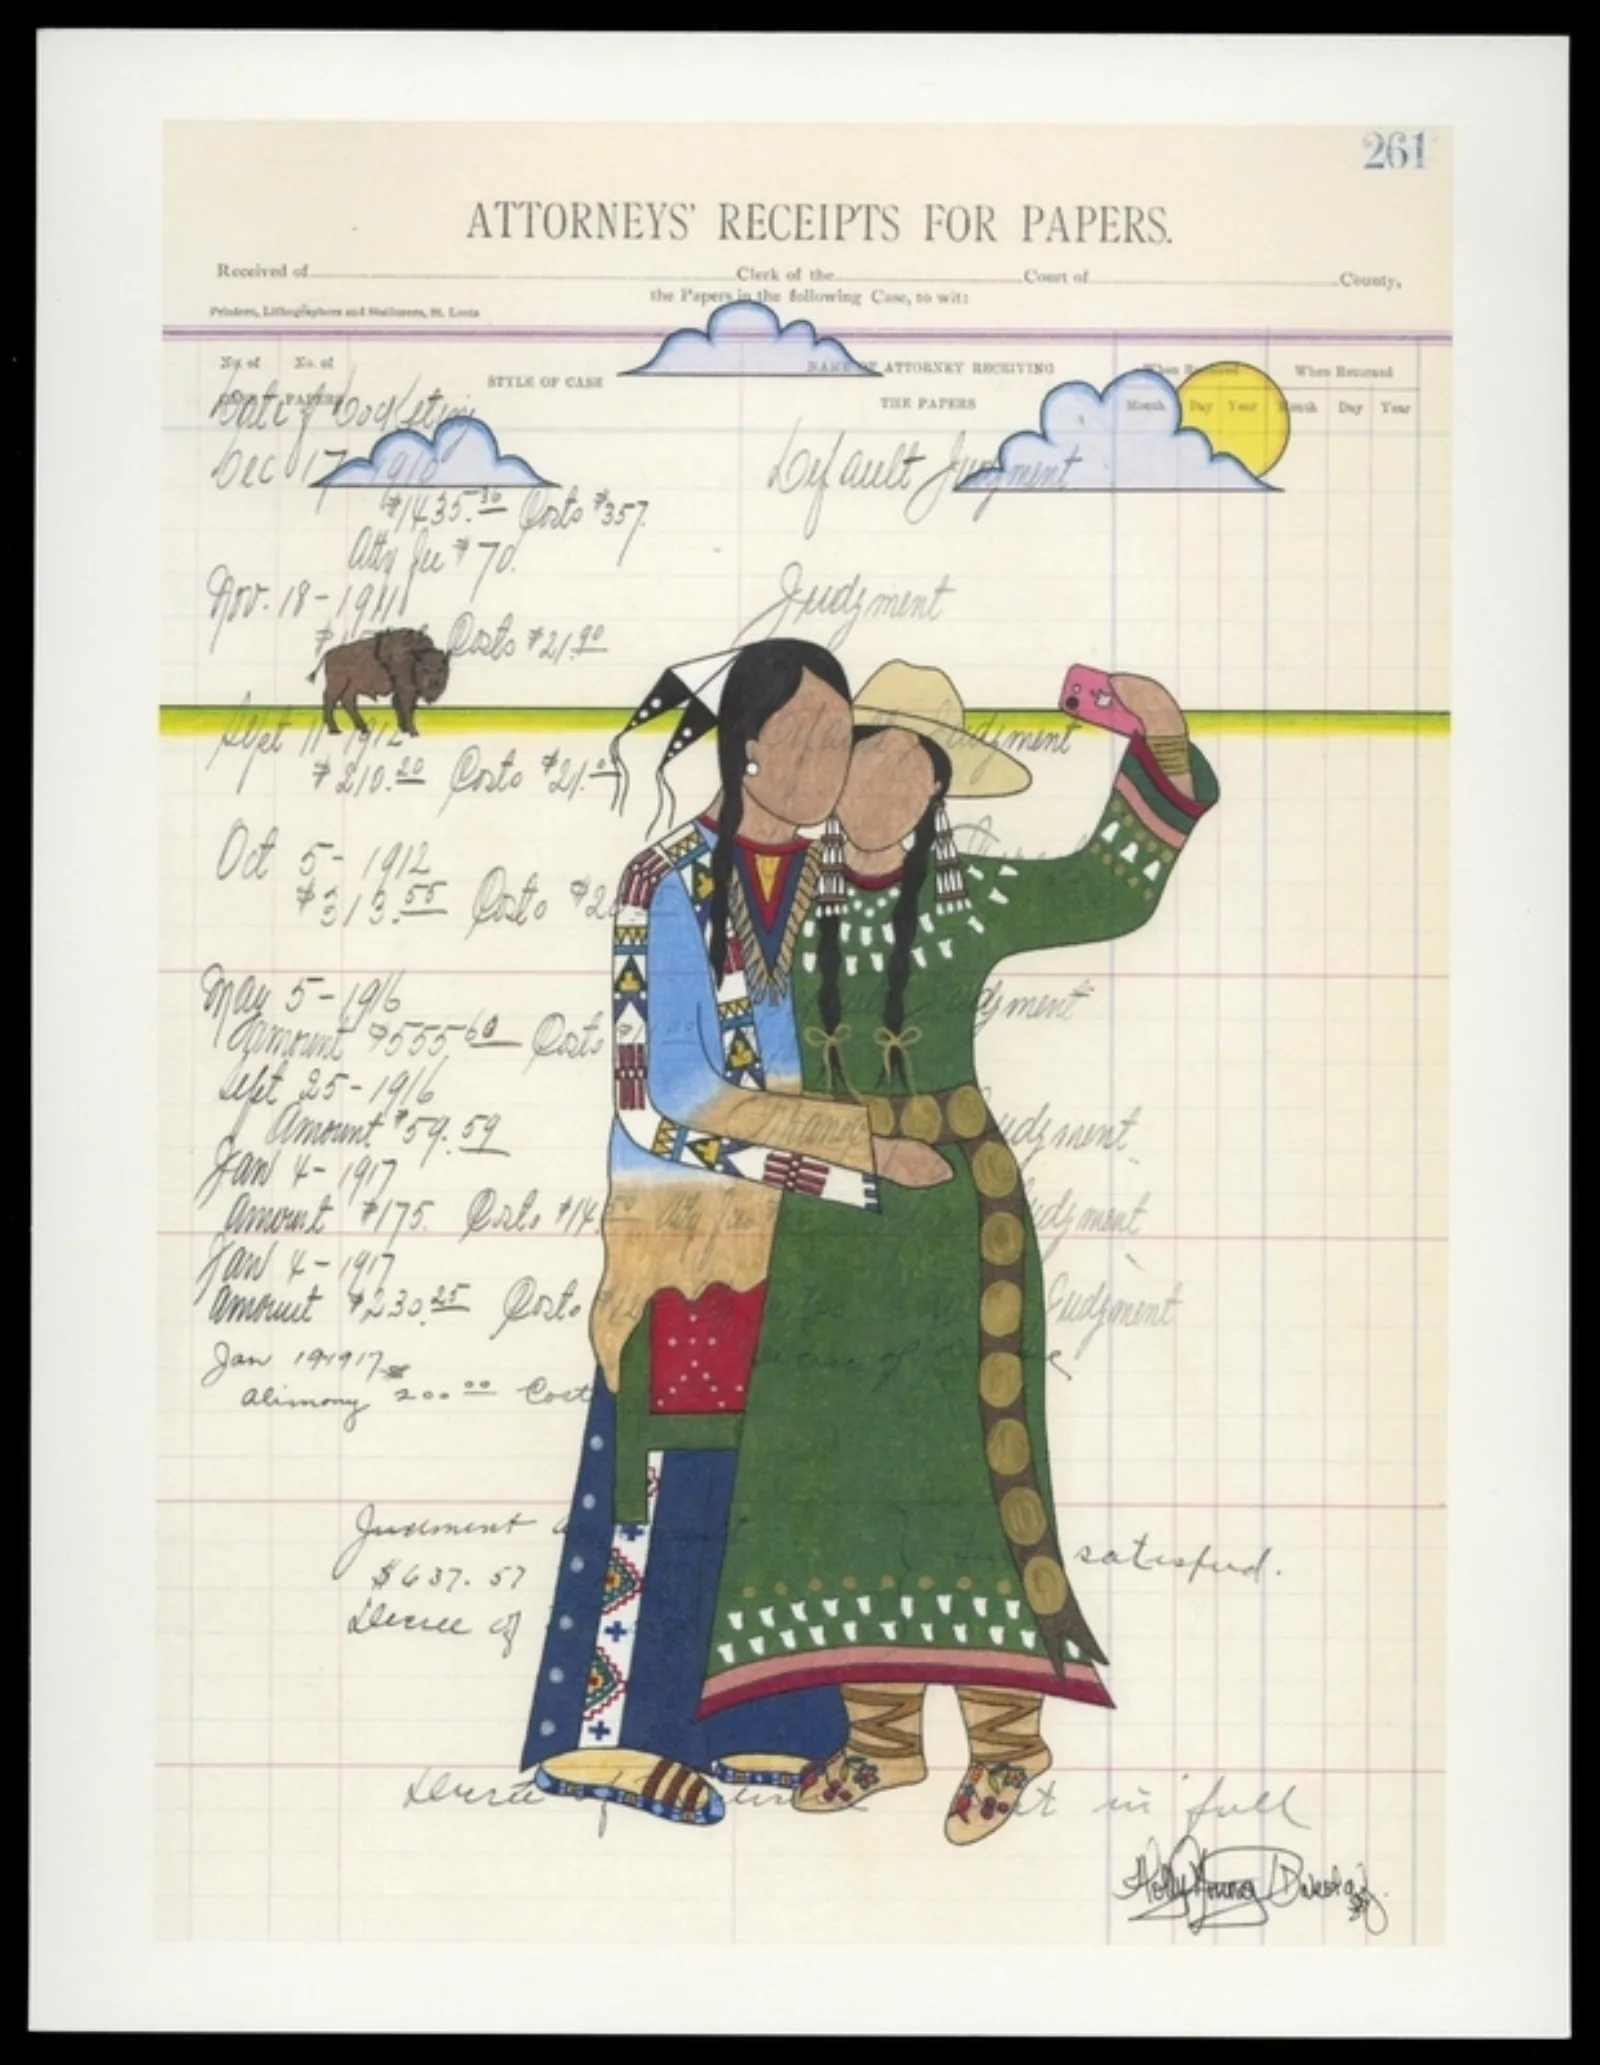 261
ATTORNEYS' RECEIPTS FOR PAPERS.
Received of Clerk of the Court of County,
the Papers in the following Case, to wit:
Printers, Lithographers and Stationers, St. Louis
No. of No. of STYLE OF CASE NAME OF ATTORNEY RECEIVING When Received When Returned
PAPERS THE PAPERS Month Day Year Month Day Year
Date of Docketing
Dec 17 1910 Default Judgment
$1435.36 Costs $357
Atty fee $70.
Nov. 18-1911 Judgment
Costs $21.90
Sept 11-1912 Judgment
$210.20 Costs $21.
Oct 5-1912
$313.55 Costs $2
May 5-1916 Judgment
Amount $555.60 Costs
Sept 25-1916
Amount $59.59 Judgment
Jan 4-1917
Amount $175. Costs $14.50 Judgment
Jan 4-1917
Amount $230.25 Costs Judgment
Jan 19 1917
Alimony 200.00 Cost
Judgment satisfied.
$637.57
Decree of
in full
Holly Young Dakota